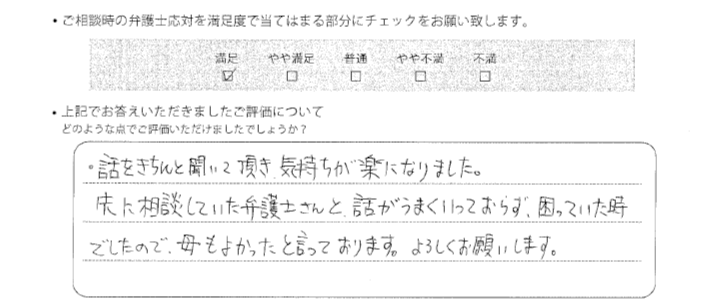 ・ご相談時の弁護士応対を満足度で当てはまる部分にチェックをお願い致します。
満足 やや満足 普通 やや不満 不満
☑ □ □ □ □
・上記でお答えいただきましたご評価について
どのような点でご評価いただけましたでしょうか？
・話をきちんと聞いて頂き、気持ちが楽になりました。
先に相談していた弁護士さんと、話がうまくいっておらず、困っていた時
でしたので、母もよかったと言っております。よろしくお願いします。